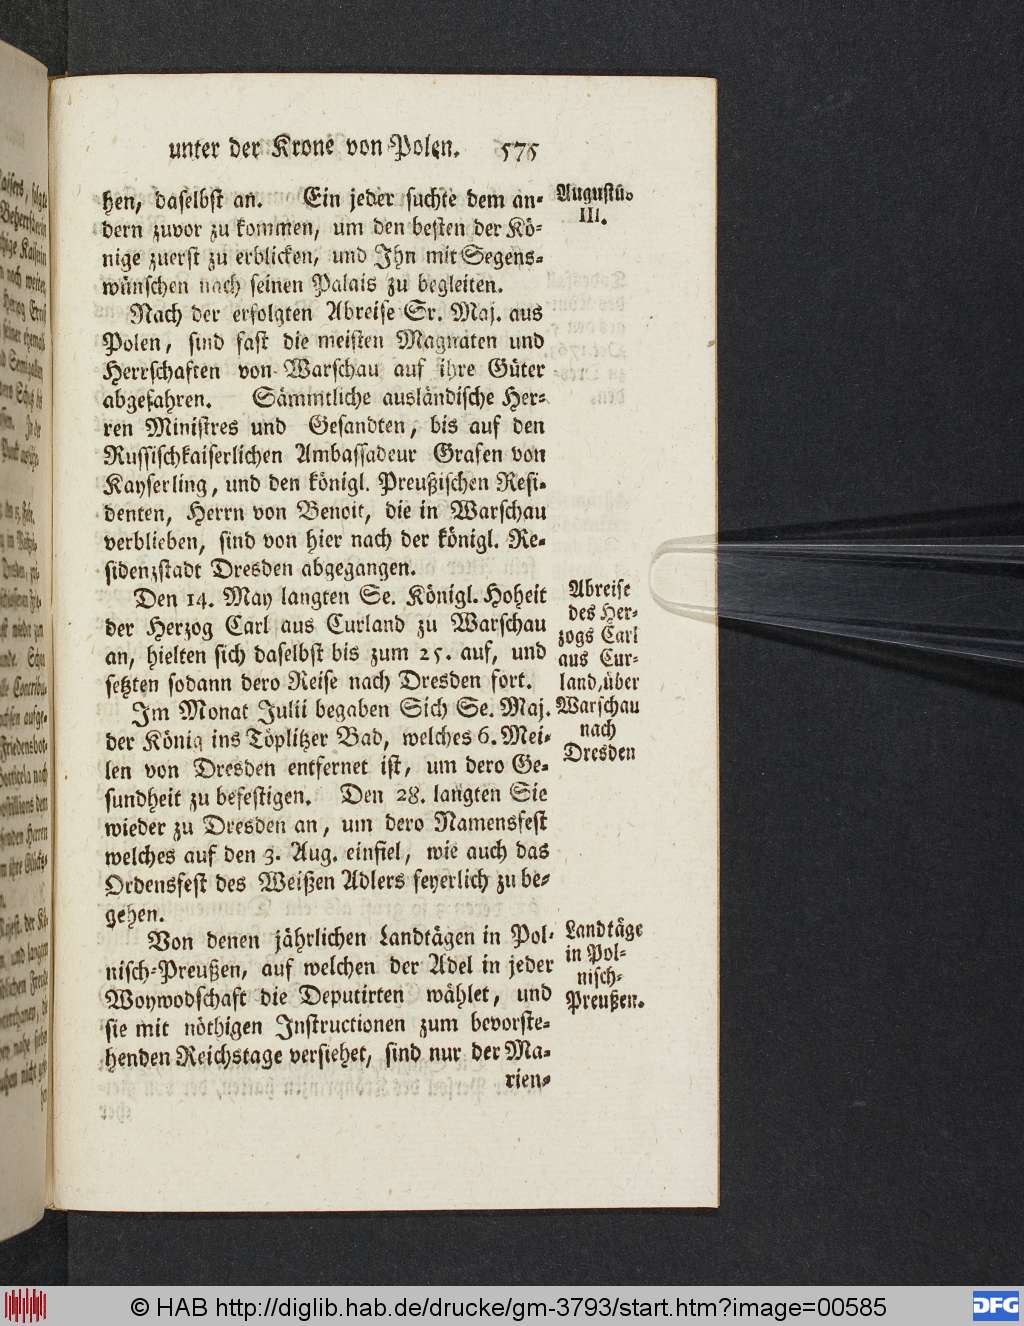 unter der Krone von Polen. 575
hen, daselbst an. Ein jeder suchte dem an-
dern zuvor zu kommen, um den besten der Kö-
nige zuerst zu erblicken, und Ihn mit Segens-
wünschen nach seinen Palais zu begleiten.
Nach der erfolgten Abreise Sr. Maj. aus
Polen, sind fast die meisten Magnaten und
Herrschaften von Warschau auf ihre Güter
abgefahren. Sämmtliche ausländische Her-
ren Ministres und Gesandten, bis auf den
Russischkaiserlichen Ambassadeur Grafen von
Kayserling, und den königl. Preußischen Resi-
denten, Herrn von Benoit, die in Warschau
verblieben, sind von hier nach der königl. Re-
sidenzstadt Dresden abgegangen.
Den 14. May langten Se. Königl. Hoheit
der Herzog Carl aus Curland zu Warschau
an, hielten sich daselbst bis zum 25. auf, und
setzten sodann dero Reise nach Dresden fort.
Im Monat Julii begaben Sich Se. Maj.
der König ins Töplitzer Bad, welches 6. Mei-
len von Dresden entfernet ist, um dero Ge-
sundheit zu befestigen. Den 28. langten Sie
wieder zu Dresden an, um dero Namensfest
welches auf den 3. Aug. einfiel, wie auch das
Ordensfest des Weißen Adlers feyerlich zu be-
gehen.
Von denen jährlichen Landtägen in Pol-
nisch-Preußen, auf welchen der Adel in jeder
Woywodschaft die Deputirten wählet, und
sie mit nöthigen Instructionen zum bevorste-
henden Reichstage versiehet, sind nur der Ma-
rien-
Augustus
III.
Abreise
des Her-
zogs Carl
aus Cur-
land, über
Warschau
nach
Dresden
Landtäge
in Pol-
nisch-
Preußen.
© HAB http://diglib.hab.de/drucke/gm-3793/start.htm?image=00585
DFG